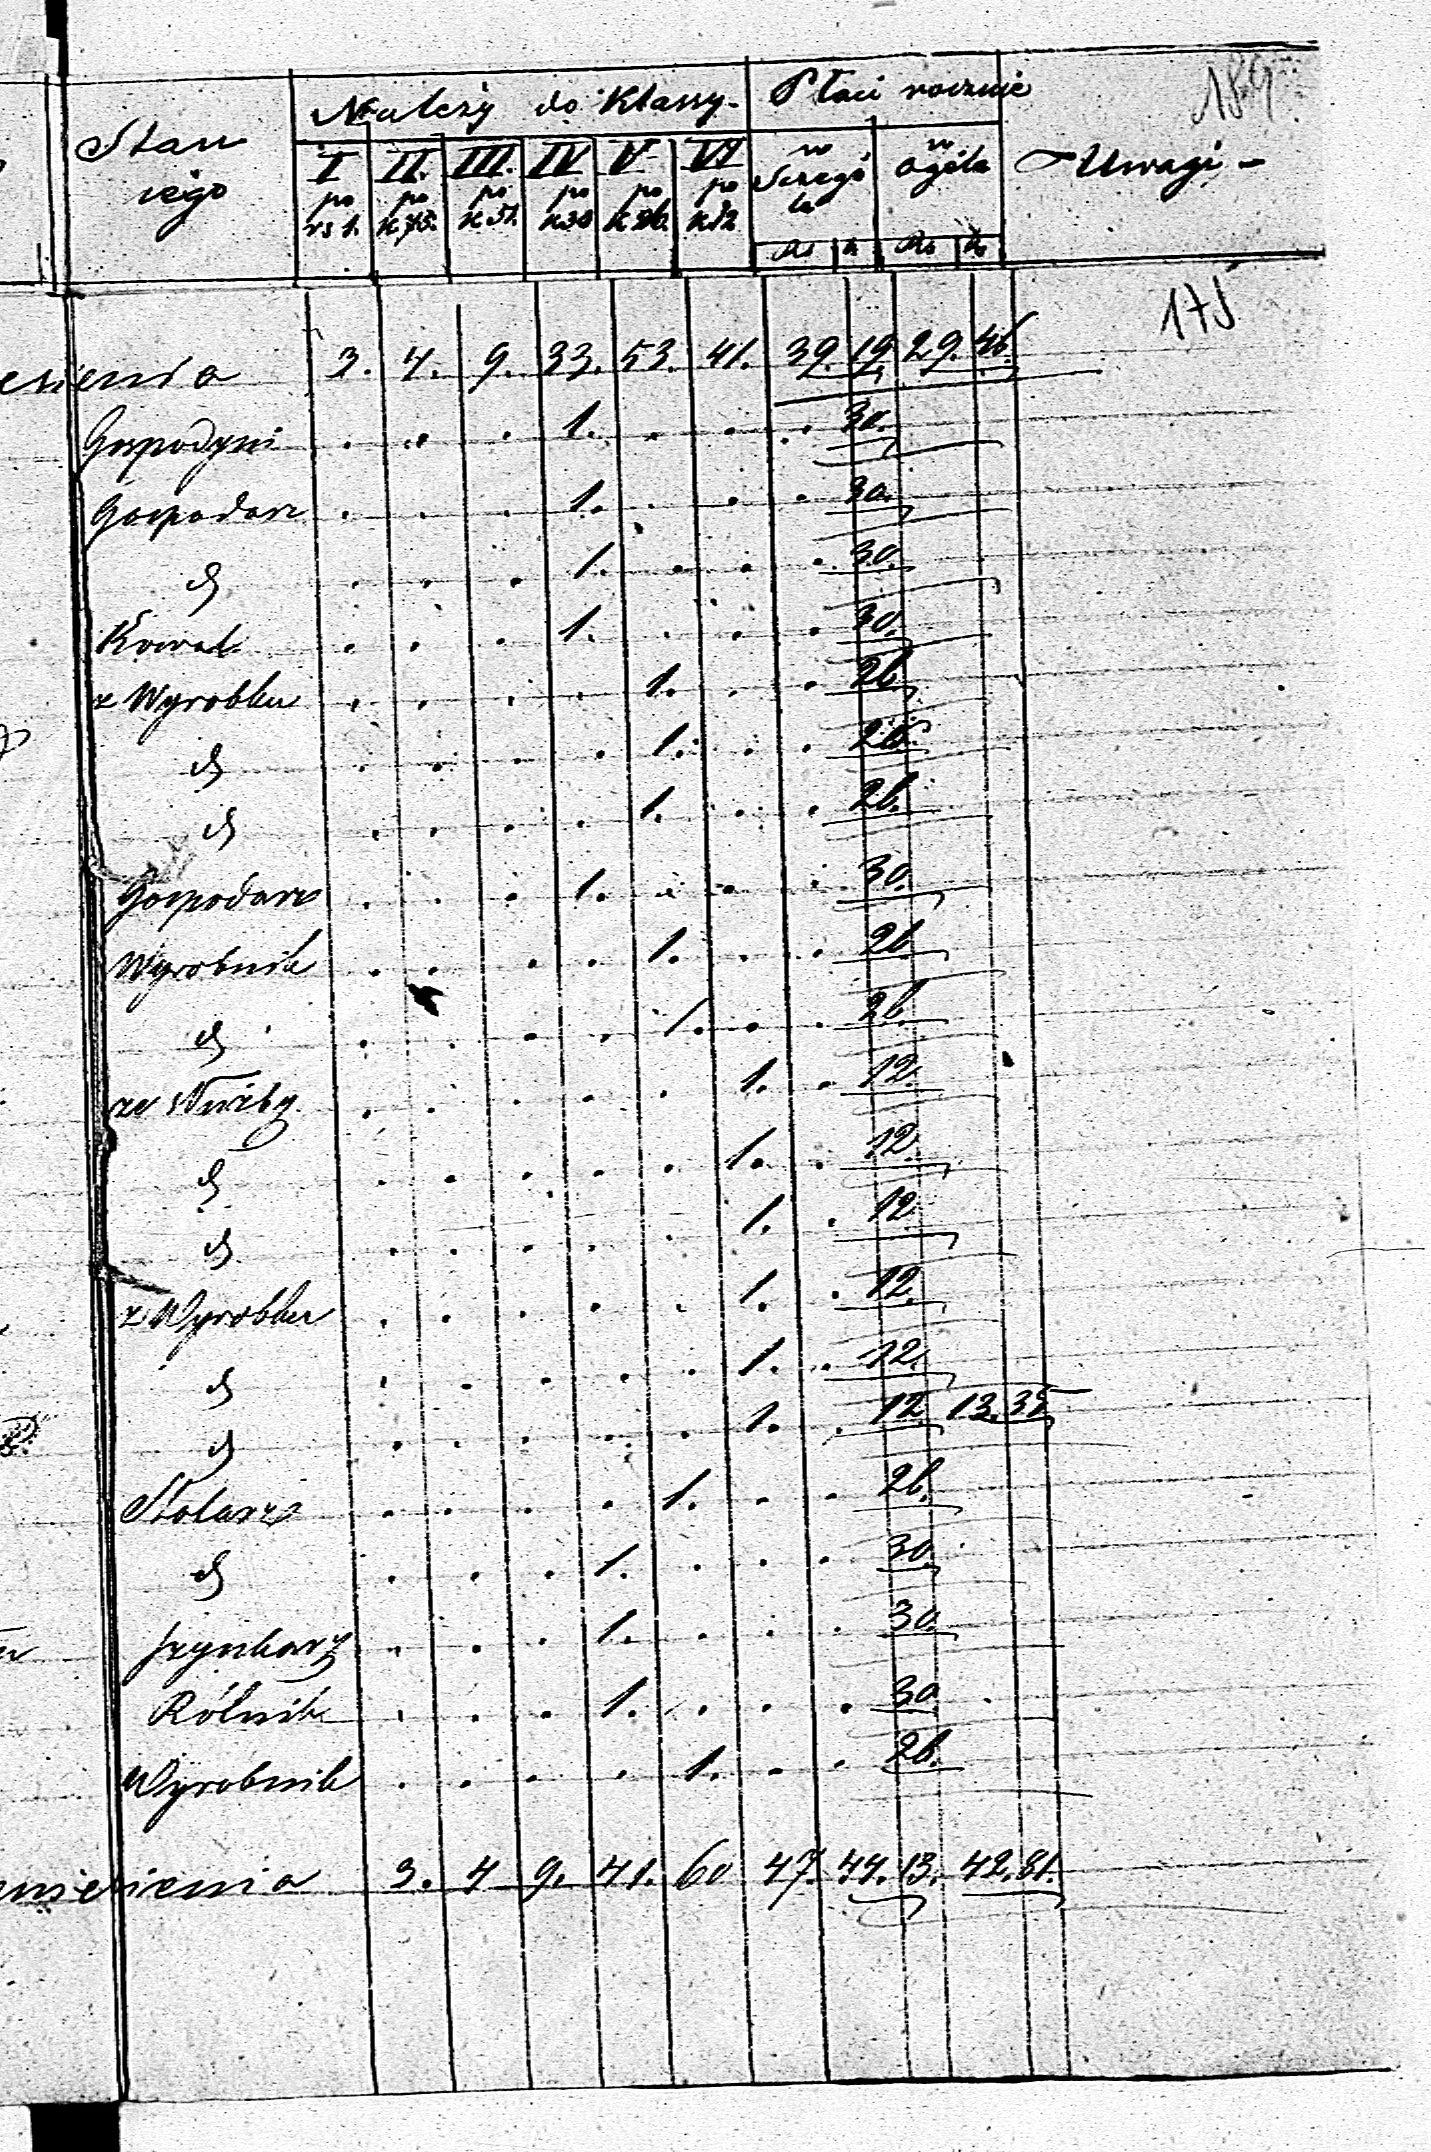 189
Stan
jego
Należy do Klassy
Płaci rocznie
Uwagi
I II. III. IV V VI
po po po po po po
rs 1. k 75. k 51. k 30 k 26. k 12
w Szczegóła
w ogóle
Rs k Rs k
175
esienia 3. 4. 9. 33. 53. 41. 39. 19 29. 46.
Gospodyni . . . 1. . . . 30.
Gospodarz . . . 1. . . . 30.
d . . . 1. . . . 30.
Kowal . . . 1. . . . 30.
z Wyrobku . . . . 1. . . 26
d . . . . 1. . . 26.
d . . . . 1. . . 26.
Gospodarz . . . 1. . . . 30.
Wyrobnik . . . . 1. . . 26
d . . . . 1. . . 26.
ze Służby . . . . . 1. . 12.
d . . . . . 1. . 12.
d . . . . . 1. . 12
z Wyrobku . . . . . 1. . 12.
d . . . . . 1. . 12.
d . . . . . 1. . 12 13. 35
Stolarz . . . . 1. . . 26.
d . . . 1. . . . 30.
szynkarz . . . 1. . . . 30.
Rólnik . . . 1. . . . 30
Wyrobnik . . . . 1. . . 26.
niesienia 3. 4 9. 41. 60 47. 44. 13. 42. 81.